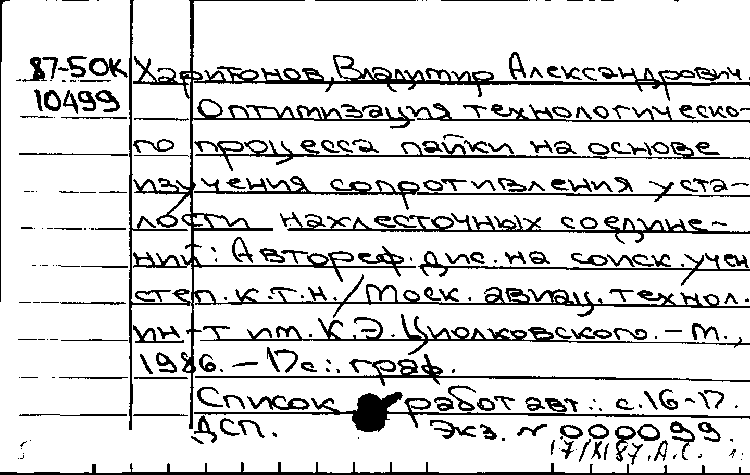 87-5ОК Харитонов, Владимир Александрович.
10499 Оптимизация технологическо-
го процесса пайки на основе
изучения сопротивления уста-
лости нахлесточных соедине-
ний: Автореф. дис. на соиск. учен
степ. к.т.н. / Моск. авиац. технол.
ин-т им. К.Э. Циолковского. - М.,
1986. - 17 с.: граф.
Список работ авт.: с. 16-17.
ДСП. Экз. № 000099.
17/XI 87. А.С.